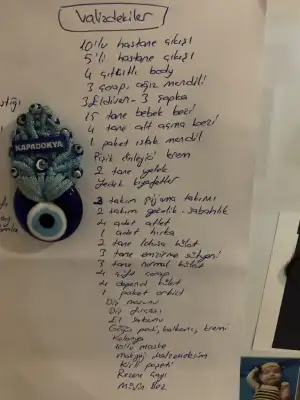 Valizdekiler
10'lu hastane çıkışı
5'li hastane çıkışı
4 çıtçıtlı body
3 çorap, ağız mendili
3 Eldiven - 3 şapka
15 tane bebek bezi
4 tane alt açma bezi
1 paket ıslak mendil
Pişik önleyici krem
2 tane yelek
Yedek kıyafetler
KAPADOKYA
2 takım pijama takımı
2 takım gecelik - sabahlık
4 adet atlet
1 adet hırka
2 tane lohusa külot
3 tane emzirme sütyeni
3 tane normal külot
4 çift çorap
4 depend külot
1 paket orkid
Diş macunu
Diş fırçası
El sabunu
Göğüs pedi, kremi
Kolonya
10'lu maske
Makyaj malzemelerim
Kirli poşeti
Rezene çayı
Müslin bez